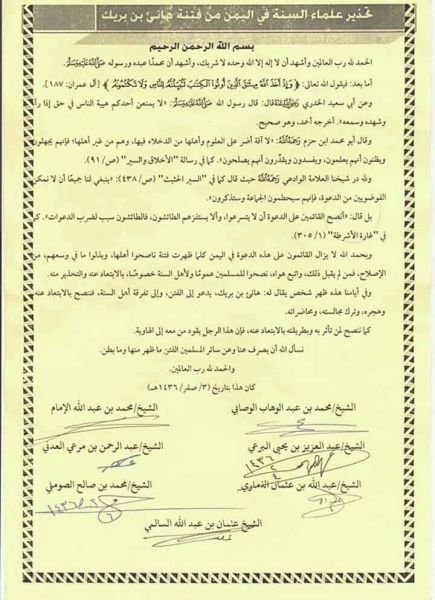 تحذير علماء السنة في اليمن من فتنة هانئ بن بريك
بسم الله الرحمن الرحيم
الحمد لله رب العالمين وأشهد أن لا إله إلا الله وحده لا شريك، وأشهد أن محمدًا عبده ورسوله ﷺ.
أما بعد: فيقول الله تعالى: ﴿ وَإِذْ أَخَذَ اللَّهُ مِيثَاقَ الَّذِينَ أُوتُوا الْكِتَابَ لَتُبَيِّنُنَّهُ لِلنَّاسِ وَلَا تَكْتُمُونَهُ ﴾ [آل عمران: ١٨٧]
وعن أبي سعيد الخدري رَضِيَ اللَّهُ عَنْهُ قال: قال رسول الله ﷺ: «لا يمنعن أحدكم هيبة الناس في حق إذا رآه
وشهده وسمعه». أخرجه أحمد، وهو صحيح.
وقال أبو محمد ابن حزم رَحِمَهُ اللَّهُ: «لا آفة أضر على العلوم وأهلها من الدخلاء فيها، وهم من غير أهلها؛ فإنهم يجهلون
ويظنون أنهم يعلمون، ويفسدون ويقدِّرون أنهم يصلحون». كما في رسالة "الأخلاق والسير" (ص/ ٩١)
ولله در شيخنا العلامة الوادعي رَحِمَهُ اللَّهُ حيث قال كما في "السير الحثيث" (ص/ ٤٣٨): «ينبغي لنا جميعًا أن لا نمكن
الفوضويين من الدعوة، فإنهم سيحطمون الجماعة وستذكرون».
بل قال: «أنصح القائمين على الدعوة أن لا يتسرعوا، وألا يستفزهم الطائشون، فالطائشون سبب لضرب الدعوات». كما
في "غارة الأشرطة" (١/ ٣٠٥)
وبحمد الله لا يزال القائمون على هذه الدعوة في اليمن كلما ظهرت فتنة ناصحوا أهلها، وبذلوا ما في وسعهم، من
الإصلاح، فمن لم يقبل ذلك، واتبع هواه، نصحوا للمسلمين عمومًا ولأهل السنة خصوصًا، بالابتعاد عنه والتحذير منه.
وفي أيامنا هذه ظهر شخص يقال له: هانئ بن بريك، يدعو إلى الفتن، وإلى تفرقة أهل السنة، فننصح بالابتعاد عنه
وهجره، وترك مجالسته، ومحاضراته.
كما ننصح لمن تأثر به وبطريقته بالابتعاد عنه، فإن هذا الرجل يقود من معه إلى الهاوية.
نسأل الله أن يصرف عنا وعن سائر المسلمين الفتن ما ظهر منها وما بطن.
والحمد لله رب العالمين.
كان هذا بتاريخ (٣/ صفر/ ١٤٣٦هـ)
الشيخ/ محمد بن عبد الوهاب الوصابي
الشيخ/ محمد بن عبد الله الإمام
الشيخ/ عبد العزيز بن يحيى البرعي
الشيخ/ عبد الرحمن بن مرعي العدني
١٤٣٦
الشيخ/ عبد الله بن عثمان الذماري
الشيخ/ محمد بن صالح الصوملي
١٤٣٦
الشيخ عثمان بن عبد الله السالمي